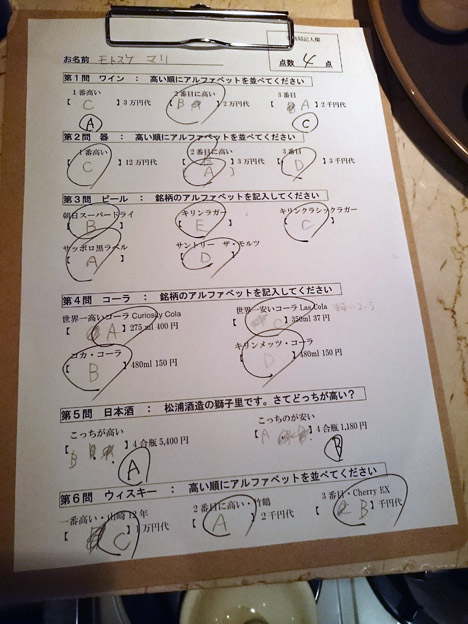 採点者記入欄
お名前 モトスケ マリ
点数 4 点
第1問 ワイン : 高い順にアルファベットを並べてください
1番高い 2番目に高い 3番目
【 C 】3万円代 【 B 】2万円代 【 A 】2千円代
A C
第2問 器 : 高い順にアルファベットを並べてください
1番高い 2番目に高い 3番目
【 C 】12万円代 【 A 】3万円代 【 D 】3千円代
第3問 ビール : 銘柄のアルファベットを記入してください
朝日スーパードライ キリンラガー キリンクラシックラガー
【 B 】 【 E 】 【 C 】
サッポロ黒ラベル サントリー ザ・モルツ
【 A 】 【 D 】
第4問 コーラ : 銘柄のアルファベットを記入してください
世界一高いコーラ Curiosity Cola 世界一安いコーラ Las Cola
【 A 】275ml 400円 【 C 】350ml 37円
コカ・コーラ キリンメッツ・コーラ
【 B 】480ml 150円 【 D 】480ml 150円
第5問 日本酒 : 松浦酒造の獅子里です。さてどっちが高い?
こっちが高い こっちのが安い
【 B 】4合瓶 5,400円 【 A 】4合瓶 1,180円
A B
第6問 ウィスキー : 高い順にアルファベットを並べてください
一番高い・山崎12年 2番目に高い・竹鶴 3番目・Cherry EX
【 C 】1万円代 【 A 】2千円代 【 B 】千円代